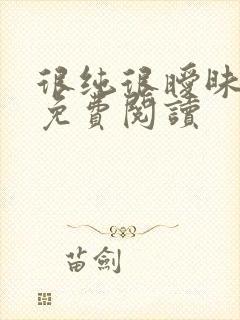 很纯很曖昧
免費閱讀
苗劍